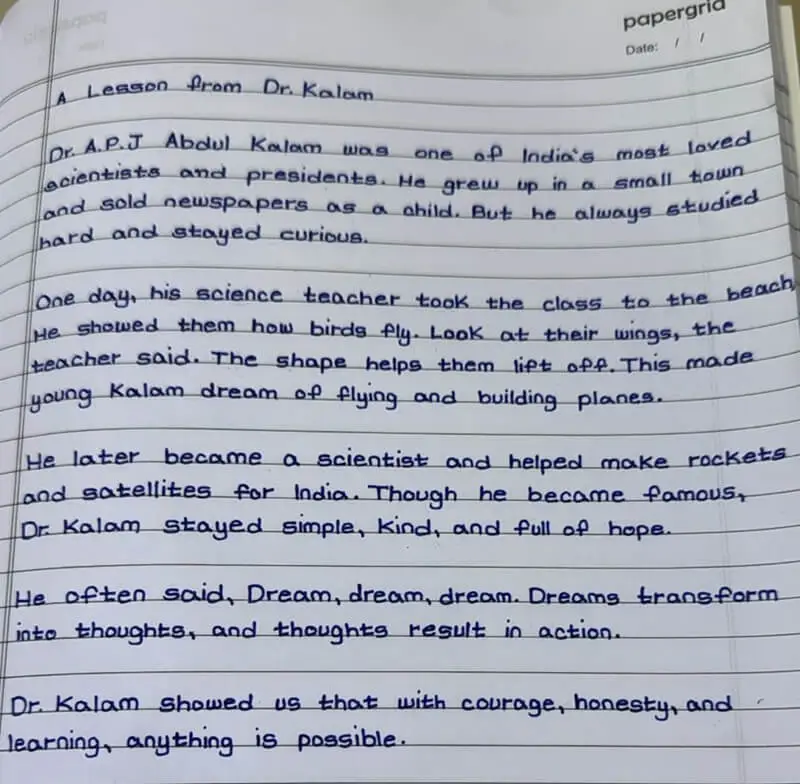 papergrid
Date: / /
A Lesson from Dr. Kalam
Dr. A.P.J Abdul Kalam was one of India's most loved
scientists and presidents. He grew up in a small town
and sold newspapers as a child. But he always studied
hard and stayed curious.
One day, his science teacher took the class to the beach,
He showed them how birds fly. Look at their wings, the
teacher said. The shape helps them lift off. This made
young Kalam dream of flying and building planes.
He later became a scientist and helped make rockets
and satellites for India. Though he became famous,
Dr. Kalam stayed simple, kind, and full of hope.
He often said, Dream, dream, dream. Dreams transform
into thoughts, and thoughts result in action.
Dr. Kalam showed us that with courage, honesty, and
learning, anything is possible.